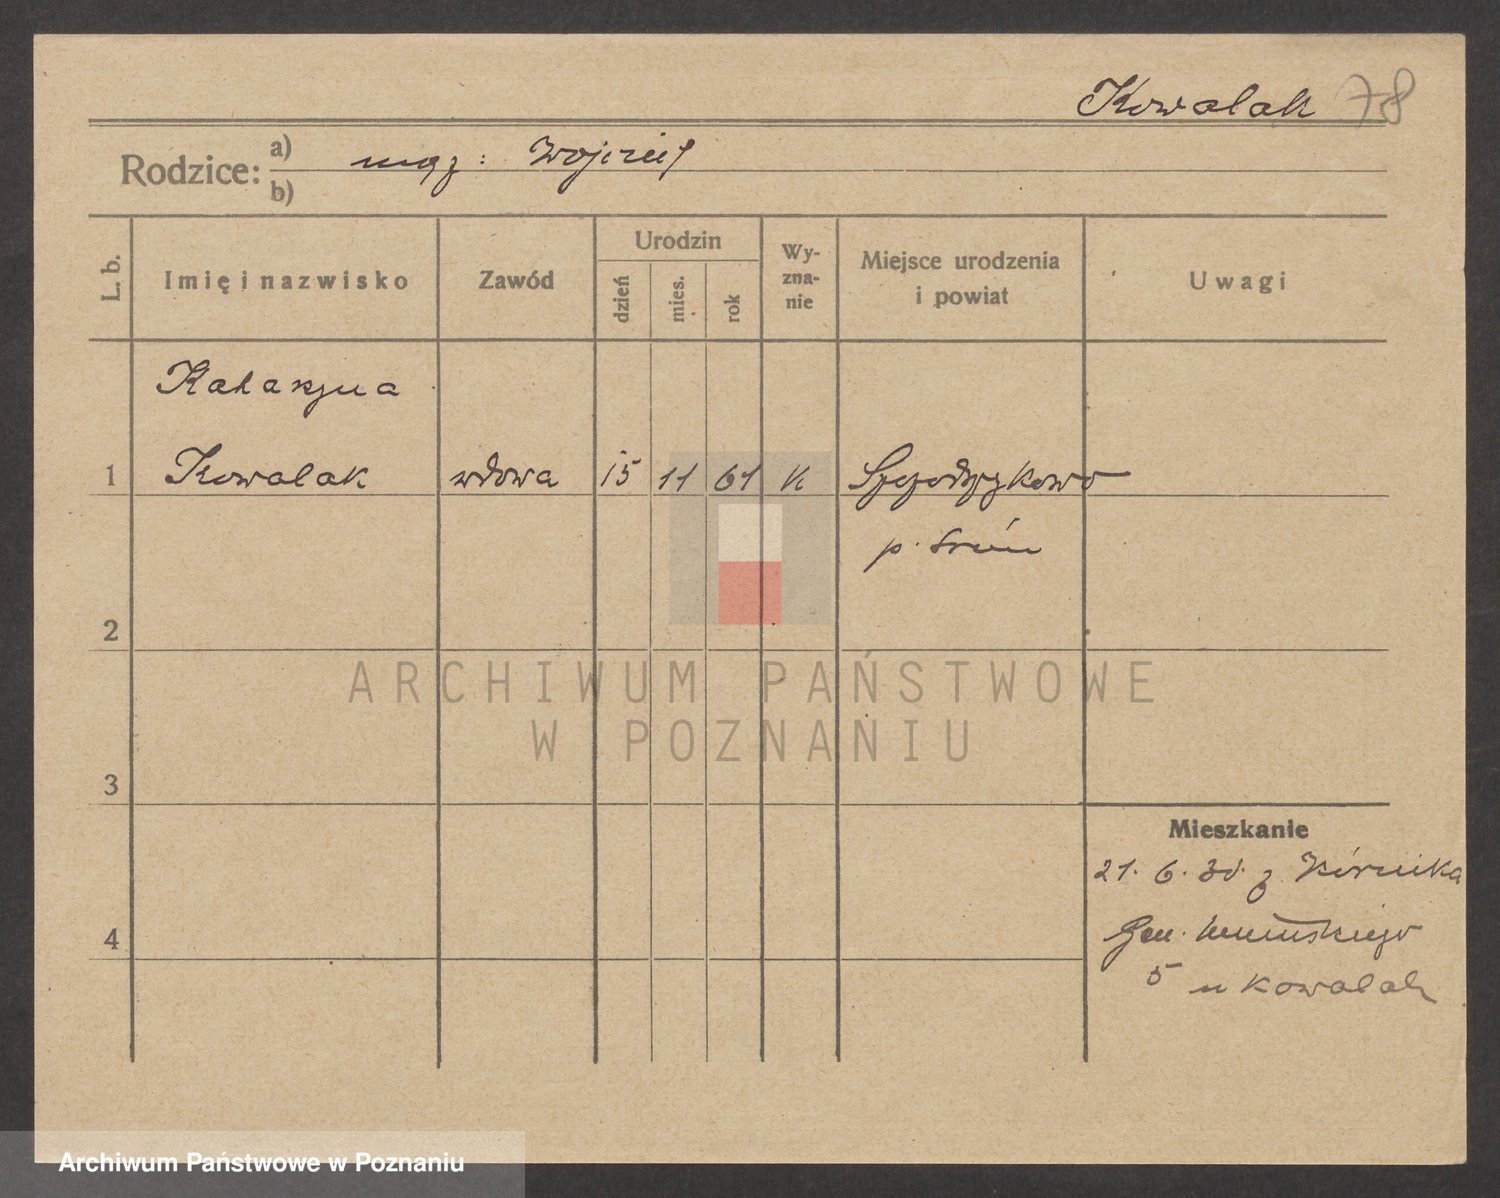 Kowalak 78
Rodzice: a) mąż: Wojciech
b)
L. b.
Imię i nazwisko
Zawód
Urodzin
dzień
mies.
rok
Wy-
zna-
nie
Miejsce urodzenia
i powiat
Uwagi
Katarzyna
1 Kowalak wdowa 15 11 61 k
p. Śrem
2
3
4
Mieszkanie
21. 6. z Kórnika
Gen.
5 u Kowalak
ARCHIWUM PAŃSTWOWE
W POZNANIU
Archiwum Państwowe w Poznaniu